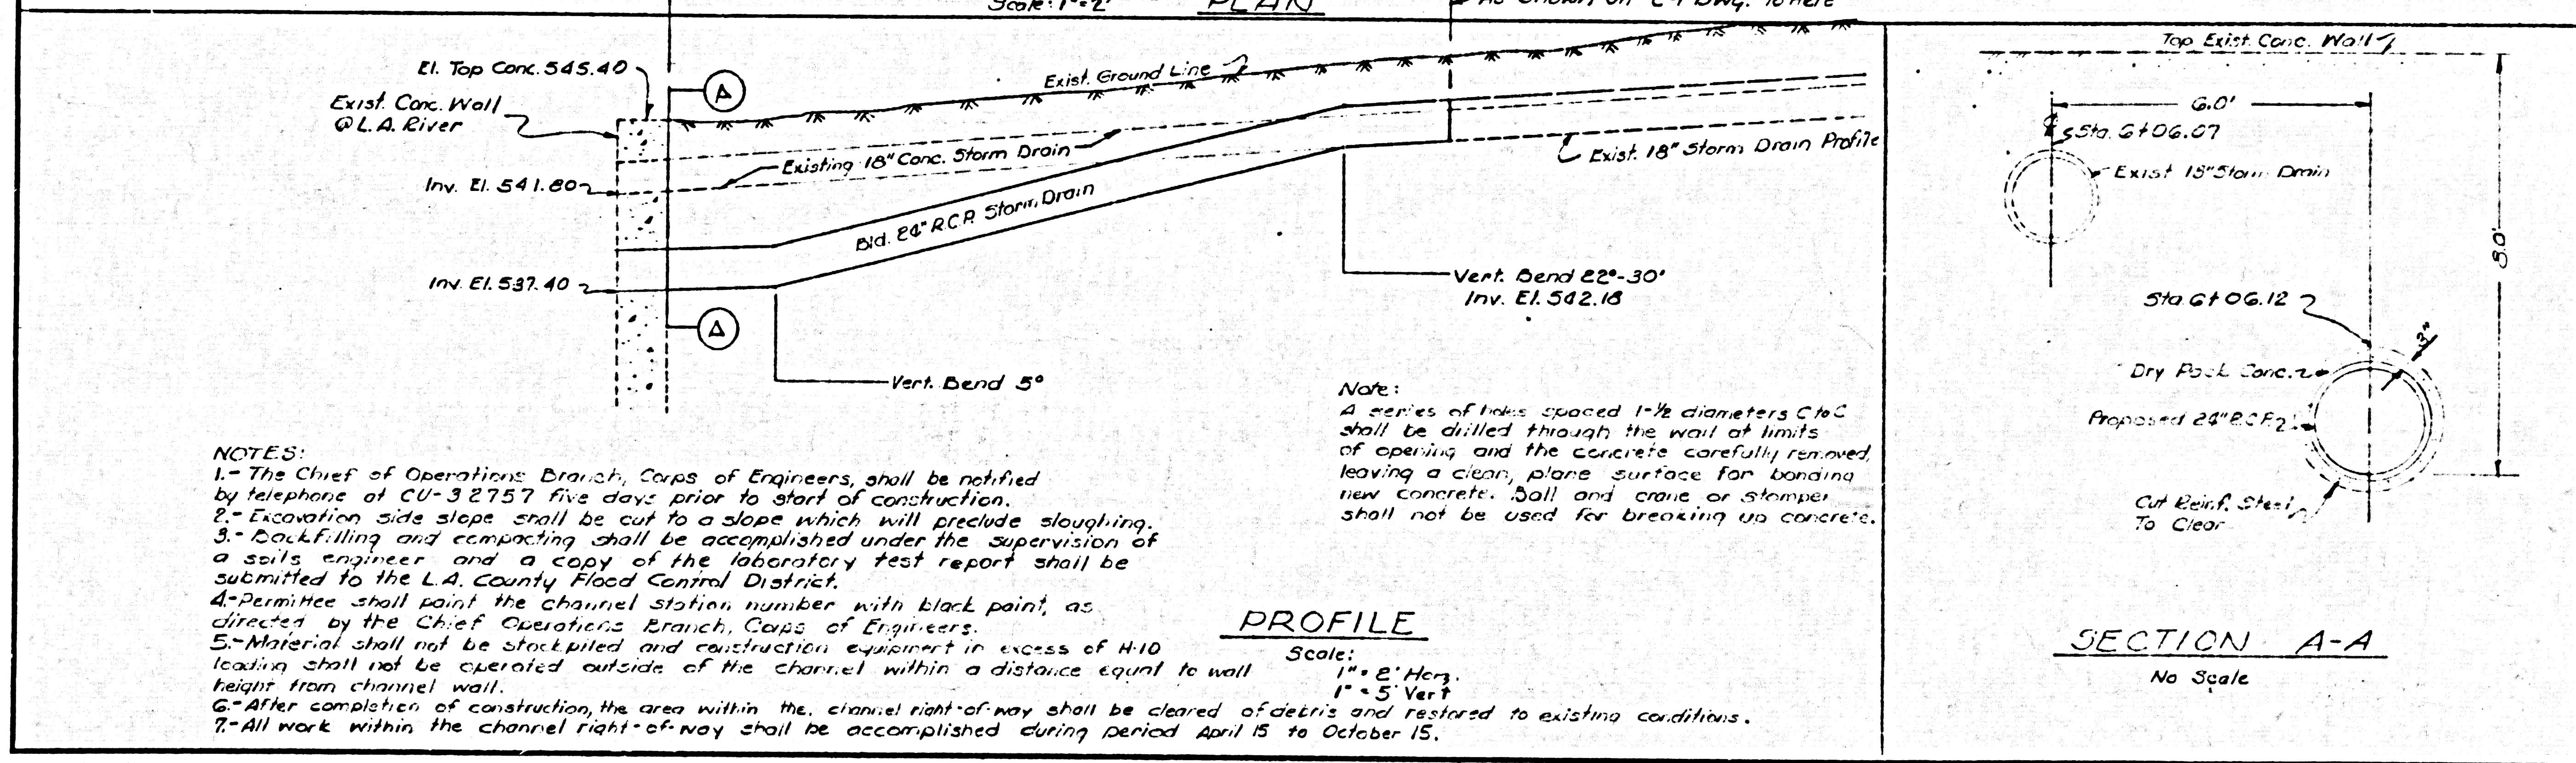 Scale: 1"=2'
PLAN
As Shown on C-1 Dwg. To Here
El. Top Conc. 545.40
Exist. Conc. Wall
@ L.A. River
A
Exist. Ground Line
Existing 18" Conc. Storm Drain
Exist. 18" Storm Drain Profile
Inv. El. 541.80
Bld. 24" R.C.P. Storm Drain
Inv. El. 537.40
A
Vert. Bend 22°-30'
Inv. El. 542.18
Vert. Bend 5°
Note:
A series of holes spaced 1-½ diameters C to C
shall be drilled through the wall at limits
of opening and the concrete carefully removed,
leaving a clean, plane surface for bonding
new concrete. Ball and crane or stomper
shall not be used for breaking up concrete.
NOTES:
1.- The Chief of Operations Branch, Corps of Engineers, shall be notified
by telephone at CU-3 2757 five days prior to start of construction.
2.- Excavation side slope shall be cut to a slope which will preclude sloughing.
3.- Backfilling and compacting shall be accomplished under the supervision of
a soils engineer and a copy of the laboratory test report shall be
submitted to the L.A. County Flood Control District.
4.- Permittee shall paint the channel station number with black paint, as
directed by the Chief Operations Branch, Corps of Engineers.
5.- Material shall not be stockpiled and construction equipment in excess of H-10
loading shall not be operated outside of the channel within a distance equal to wall
height from channel wall.
6.- After completion of construction, the area within the channel right-of-way shall be cleared of debris and restored to existing conditions.
7.- All work within the channel right-of-way shall be accomplished during period April 15 to October 15.
PROFILE
Scale:
1" = 2' Horz.
1" = 5' Vert
Top Exist. Conc. Wall
6.0'
Sta. 6+06.07
Exist 18" Storm Drain
8.0'
Sta 6+06.12
3"
Dry Pack Conc.
Proposed 24" R.C.P.
Cut Reinf. Steel
To Clear
SECTION A-A
No Scale